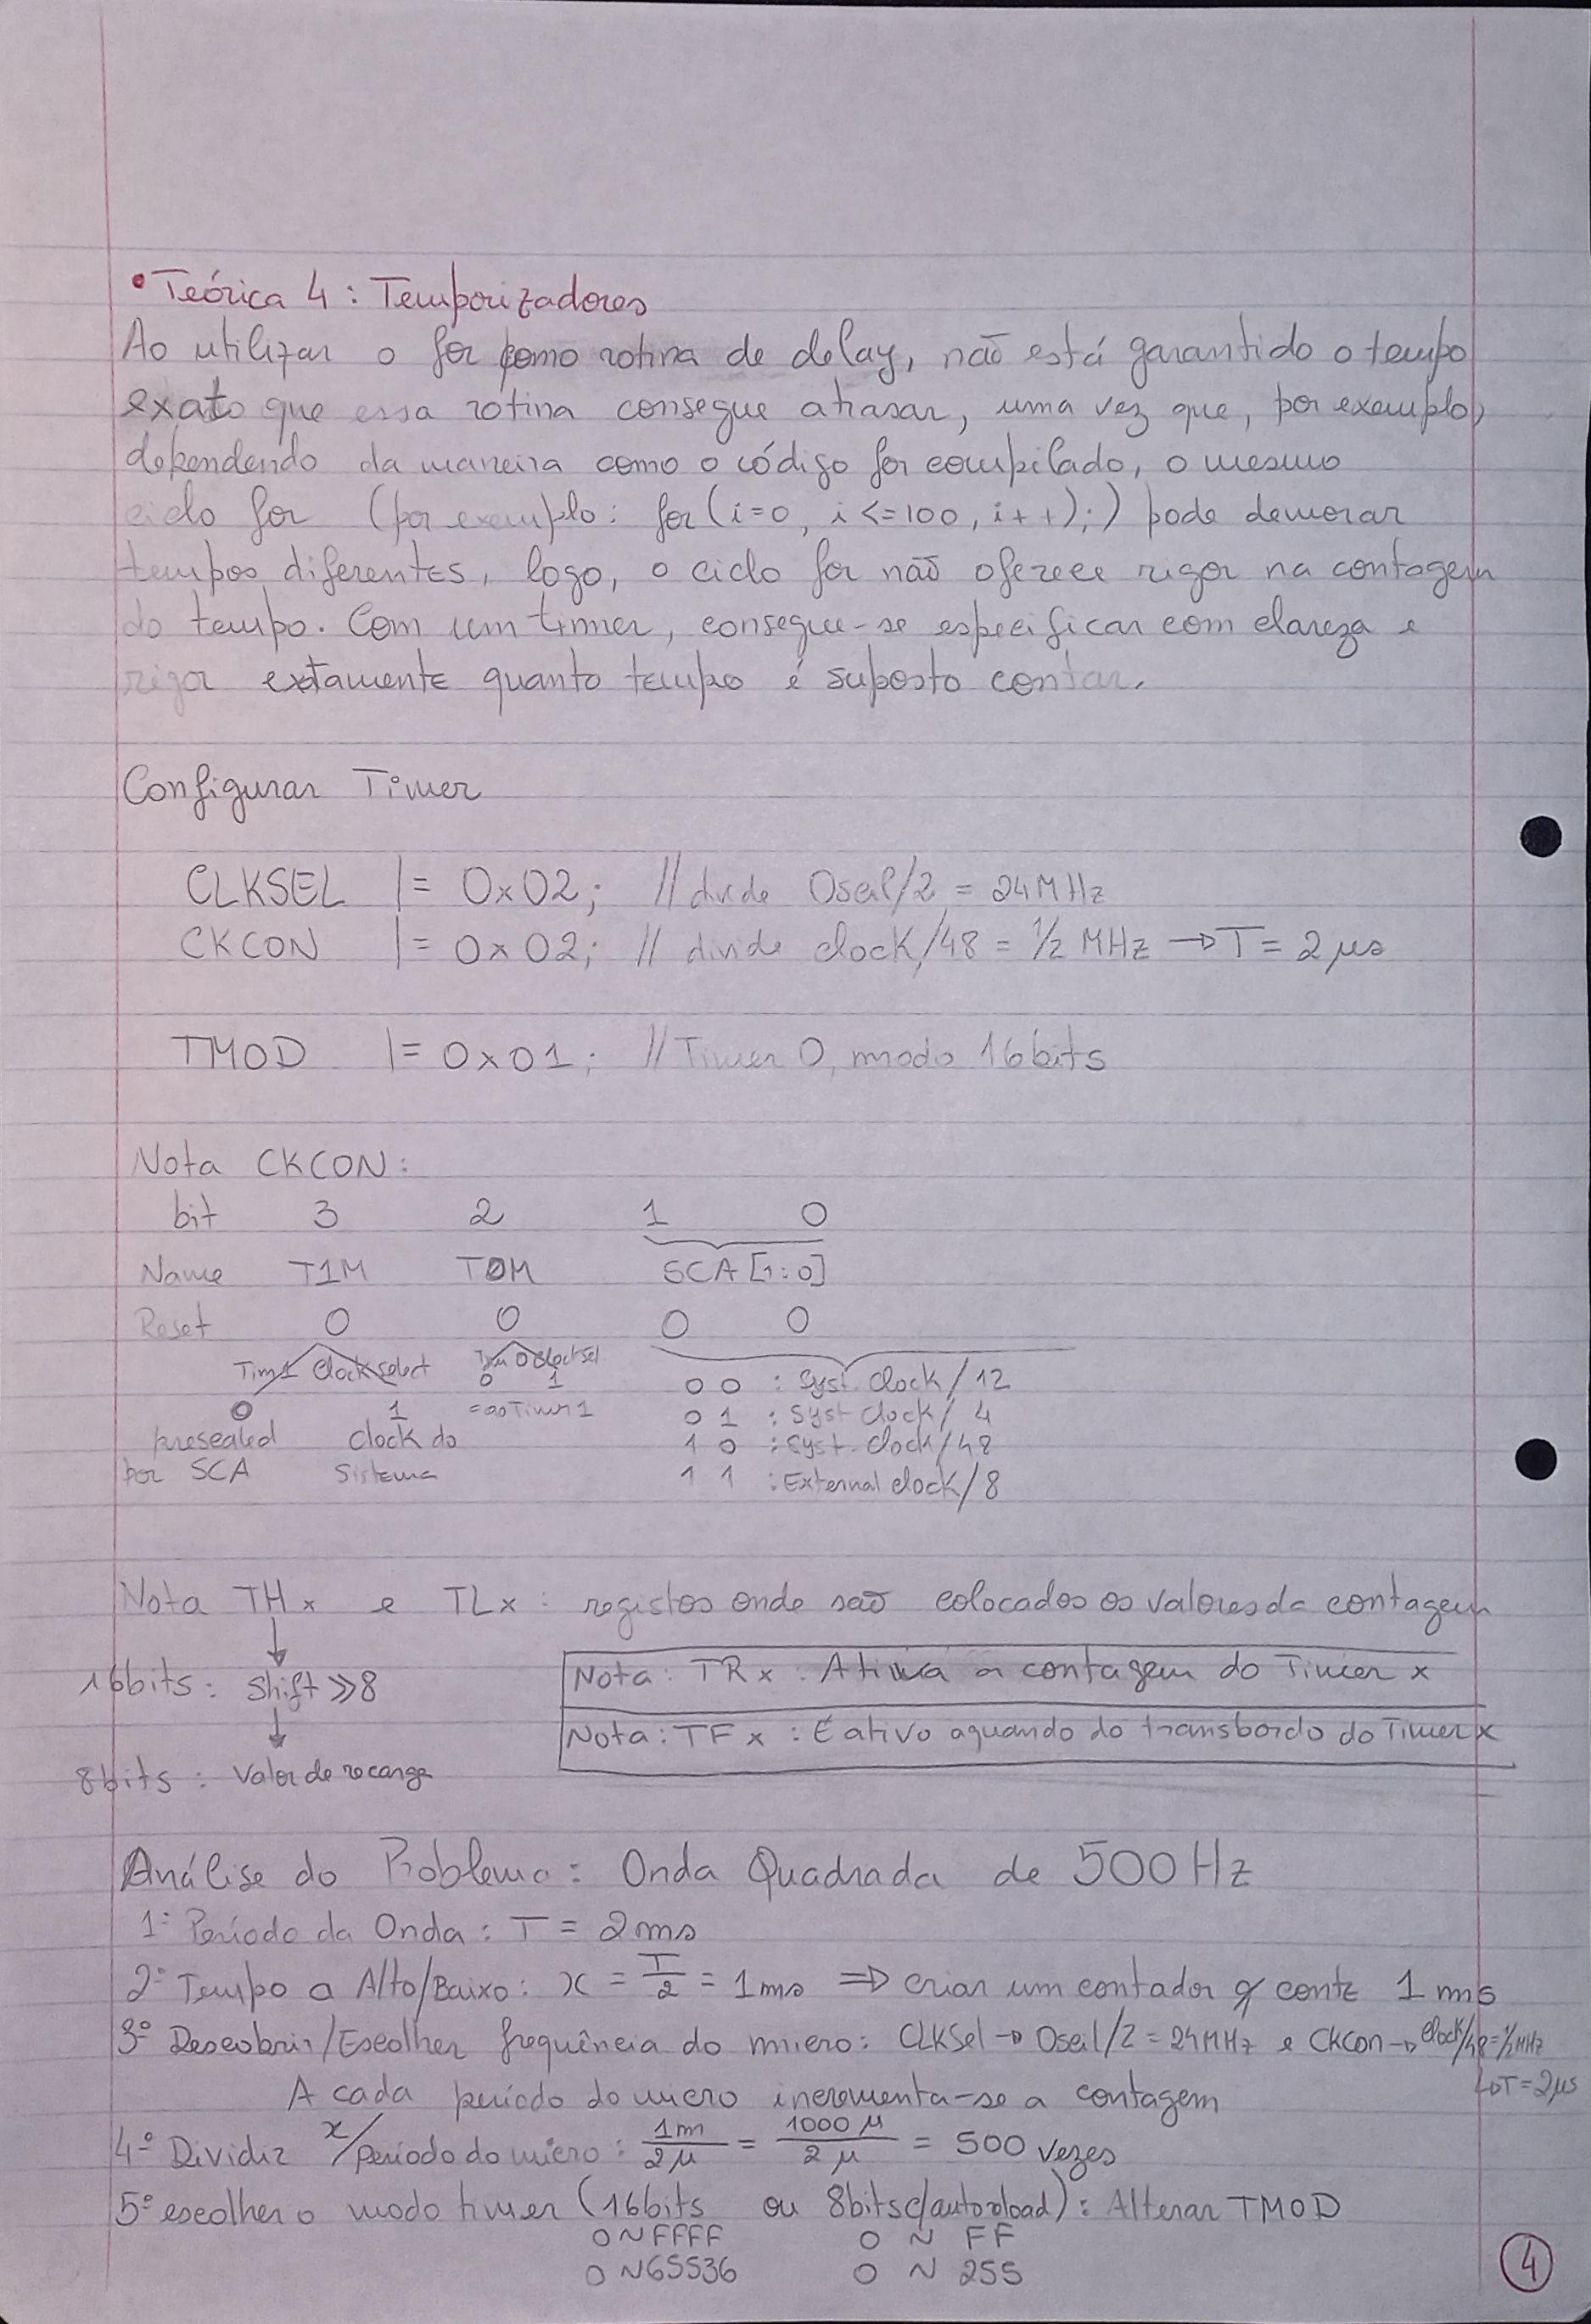 • Teórica 4 : Temporizadores
Ao utilizar o for como rotina de delay, não está garantido o tempo
exato que essa rotina consegue atrasar, uma vez que, por exemplo,
dependendo da maneira como o código for compilado, o mesmo
ciclo for (por exemplo: for(i=0, i<=100, i++);) pode demorar
tempos diferentes, logo, o ciclo for não oferece rigor na contagem
do tempo. Com um timmer, consegue-se especificar com clareza e
rigor extamente quanto tempo é suposto contar.
Configurar Timer
CLKSEL |= 0x02; // divide Oscil/2 = 24MHz
CKCON |= 0x02; // divide clock/48 = 1/2 MHz → T = 2 μs
TMOD |= 0x01; // Timer 0, modo 16bits
Nota CKCON:
bit 3 2 1 0
Name T1M T0M SCA[1:0]
Reset 0 0 0 0
Tim1 Clock select Tim 0 clock sel
0 1
0 0 : Syst. Clock/12
0 1 = ao Timer 1
0 1 : Syst Clock/ 4
prescaled clock do
1 0 : Syst. Clock/48
por SCA Sistema
1 1 : External clock/8
Nota THx e TLx : registos onde são colocados os valores da contagem
16bits : Shift >>8
Nota: TRx : Ativa a contagem do Timer x
Nota: TFx : É ativo aquando do transbordo do Timer x
8bits : Valor de recarga
Análise do Problema: Onda Quadrada de 500Hz
1º Período da Onda : T = 2ms
2º Tempo a Alto/Baixo: x = T/2 = 1ms ⇒ criar um contador q/ conte 1 ms
3º Descobrir/Escolher frequência do micro: CLKSel → Oscil/2 = 24MHz e CKcon → clock/48=1/2MHz
↳T=2μs
A cada período do micro incrementa-se a contagem
4º Dividir x/período do micro : 1m/2μ = 1000 μ/2 μ = 500 vezes
5º escolher o modo timer (16bits ou 8bits c/autoreload): Alterar TMOD
0 ~ FFFF 0 ~ FF
0 ~ 65536 0 ~ 255
4